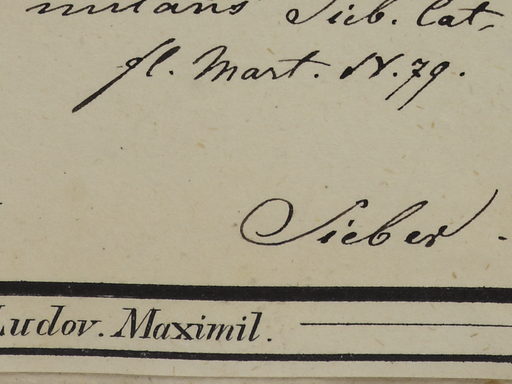 nutans Sieb. Cat.
fl. Mart. N. 79.
Sieber.
Ludov. Maximil.